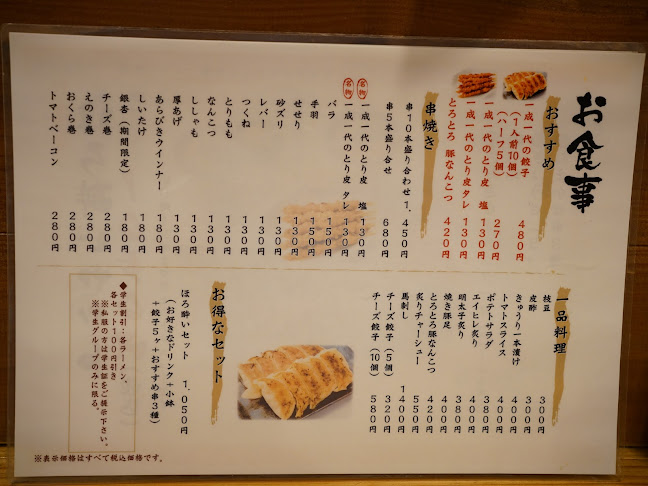 お食事
おすすめ
一成一代の餃子
(1人前10個) 480円
(ハーフ5個) 270円
一成一代のとり皮 塩 130円
一成一代のとり皮 タレ 130円
とろとろ 豚なんこつ 420円
串焼き
串10本盛り合わせ 1,450円
串5本盛り合せ 680円
名物 一成一代のとり皮 塩 130円
名物 一成一代のとり皮 タレ 130円
バラ 150円
手羽 150円
せせり 130円
砂ズリ 130円
レバー 130円
つくね 130円
とりもも 130円
なんこつ 130円
ししゃも 130円
厚あげ 130円
あらびきウインナー 180円
しいたけ 180円
銀杏(期間限定) 180円
チーズ巻 280円
えのき巻 280円
おくら巻 280円
トマトベーコン 280円
一品料理
枝豆 300円
皮酢 300円
きゅうり一本漬け 300円
トマトスライス 300円
ポテトサラダ 380円
エイヒレ炙り
明太子炙り 380円
焼き豚足 400円
とろとろ豚なんこつ 420円
炙りチャーシュー 550円
馬刺し 1400円
チーズ餃子(5個) 320円
チーズ餃子(10個) 580円
お得なセット
ほろ酔いセット 1,050円
(お好きなドリンク+小鉢
+餃子5ヶ+おすすめ串3種)
◆学生割引:各ラーメン、
各セット100円引き
※私服の方は学生証をご提示下さい。
※学生グループのみに限る。
※表示価格はすべて税込価格です。